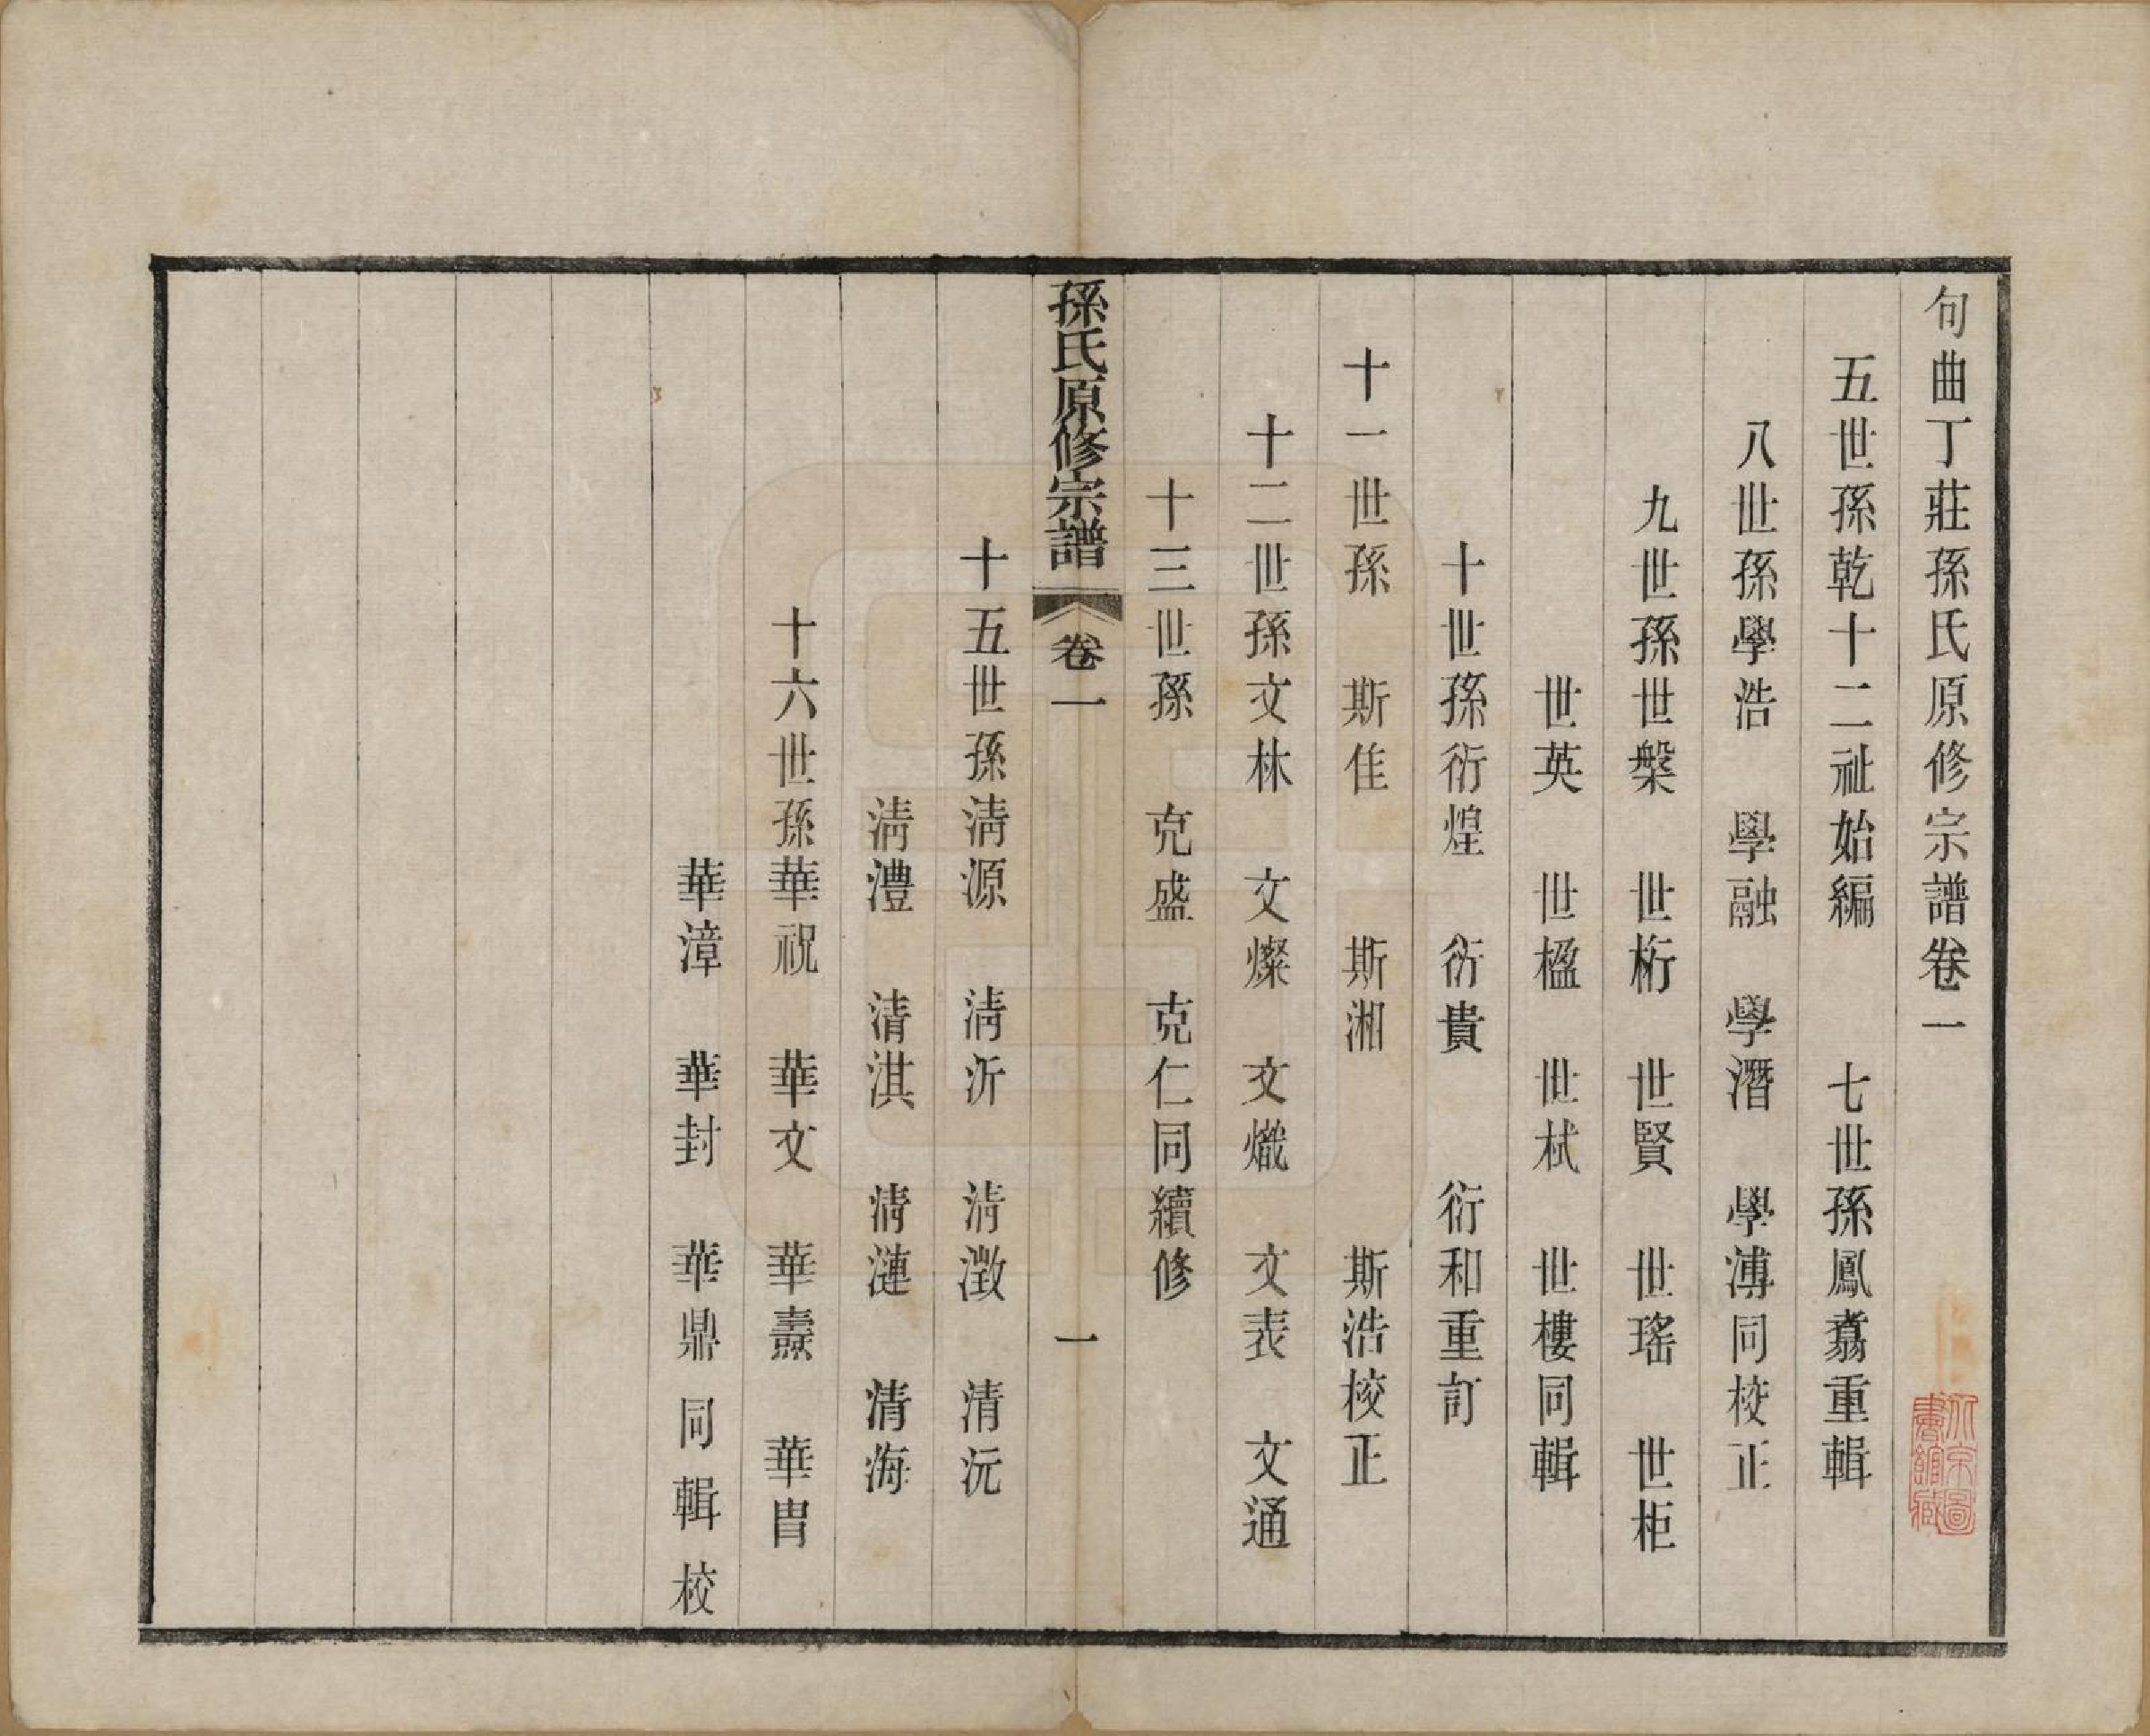 句曲丁莊孫氏原修宗譜卷一
五世孫乾十二祉始編　七世孫鳳翥重輯
八世孫學浩　學融　學潛　學溥同校正
九世孫世槃　世桁　世賢　世瑤　世柜
世英　世楹　世栻　世樓同輯
十世孫衍煌　衍貴　衍和重訂
十一世孫　斯佳　斯湘　斯浩校正
十二世孫文林　文燦　文熾　文表　文通
十三世孫　克盛　克仁同續修
孫氏原修宗譜　卷一　一
十五世孫清源　清沂　清澂　清沅
清澧　清淇　清漣　清海
十六世孫華祝　華文　華燾　華胄
華漳　華封　華鼎同輯校